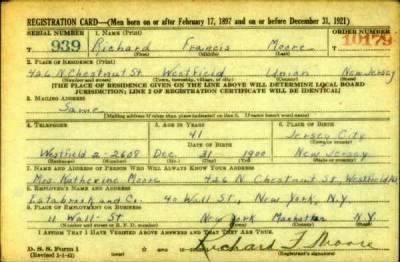 REGISTRATION CARD—(Men born on or after February 17, 1897 and on or before December 31, 1921)
SERIAL NUMBER 1. NAME (Print) ORDER NUMBER
T 939 Richard Francis Moore T 10179
(First) (Middle) (Last)
2. PLACE OF RESIDENCE (Print)
426 N Chestnut St Westfield Union New Jersey
(Number and street) (Town, township, village, or city) (County) (State)
[THE PLACE OF RESIDENCE GIVEN ON THE LINE ABOVE WILL DETERMINE LOCAL BOARD
JURISDICTION; LINE 2 OF REGISTRATION CERTIFICATE WILL BE IDENTICAL]
3. MAILING ADDRESS
Same
[Mailing address if other than place indicated on line 2. If same insert word same]
4. TELEPHONE 5. AGE IN YEARS 6. PLACE OF BIRTH
41 Jersey City
DATE OF BIRTH (Town or county)
Westfield 2-2609 Dec. 31 1900 New Jersey
(Exchange) (Number) (Mo.) (Day) (Yr.) (State or country)
7. NAME AND ADDRESS OF PERSON WHO WILL ALWAYS KNOW YOUR ADDRESS
Mrs. Katherine Moore 426 N Chestnut St, Westfield NJ
8. EMPLOYER'S NAME AND ADDRESS
Estabrook and Co. 40 Wall St, New York, N.Y.
9. PLACE OF EMPLOYMENT OR BUSINESS
11 Wall St New York Manhattan N.Y.
(Number and street or R. F. D. number) (Town) (County) (State)
I AFFIRM THAT I HAVE VERIFIED ABOVE ANSWERS AND THAT THEY ARE TRUE.
D. S. S. Form 1
Richard F Moore